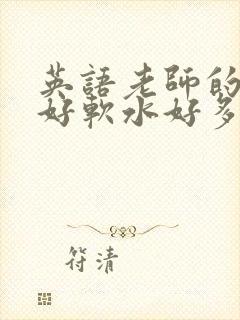 英語老師的
好軟水好多
符清